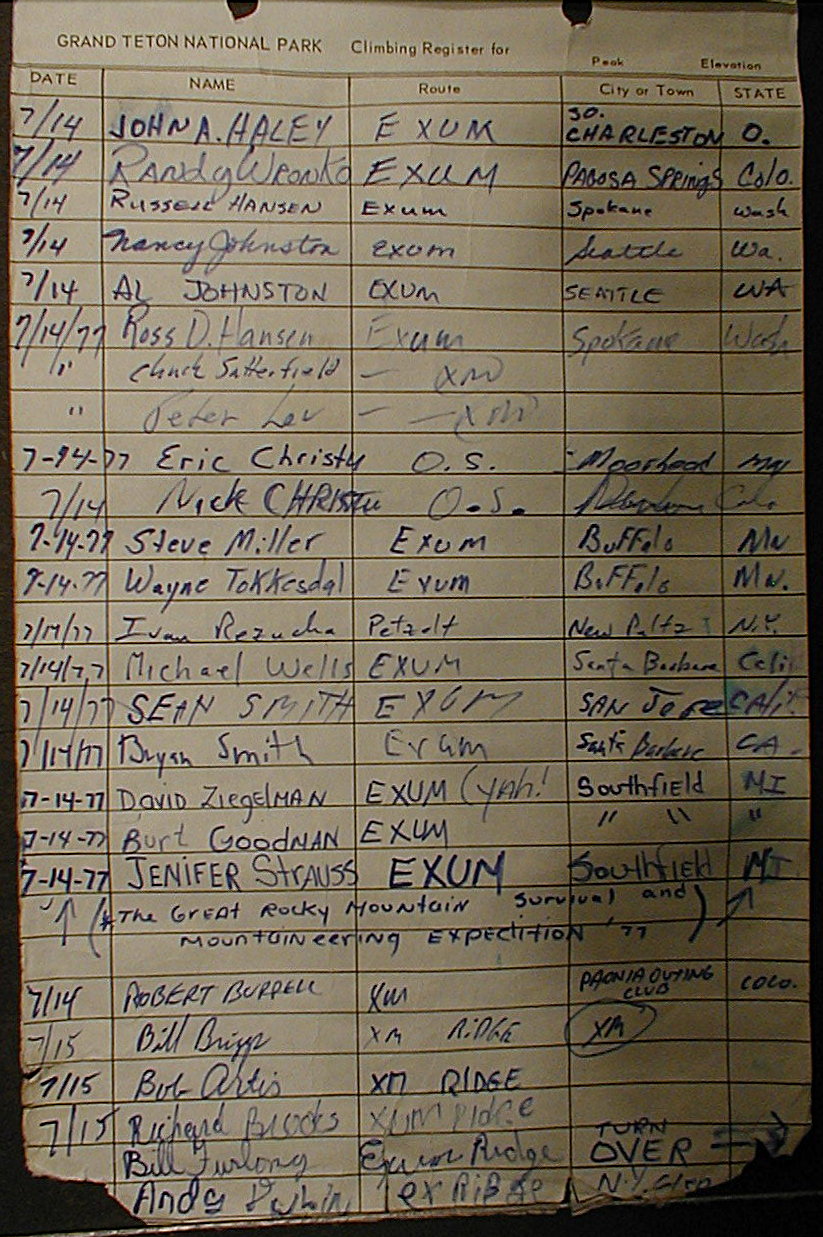 GRAND TETON NATIONAL PARK Climbing Register for
Peak Elevation
DATE NAME Route City or Town STATE
7/14 JOHN A. HALEY EXUM SO. CHARLESTON O.
7/14 RANDY WRONKO EXUM PAGOSA SPRINGS Colo.
7/14 RUSSELL HANSEN EXUM Spokane Wash
7/14 Nancy Johnston exum Seattle Wa.
7/14 AL JOHNSTON EXUM SEATTLE WA
7/14/77 Ross D. Hansen Exum Spokane Wash
" Chuck Satterfield — XM
" Peter Lev — — XM
7-14-77 Eric Christy O.S. Moorhead
7/14 Nick CHRISTY O.S. Colo
7-14-77 Steve Miller Exum Buffalo Mn
7-14-77 Wayne Tokkesdal Exum Buffalo Mn.
7/14/77 Ivan Rezucha Petzolt New Paltz N.Y.
7/14/77 Michael Wells EXUM Santa Barbara Calif
7/14/77 SEAN SMITH EXUM SAN Jose CALif.
7/14/77 Bryan Smith Exum Santa Barbara CA.
7-14-77 DAVID ZIEGELMAN EXUM (yah! Southfield MI
7-14-77 Burt GOODMAN EXUM " " "
7-14-77 JENIFER STRAUSS EXUM Southfield MI
(*THE GREAT ROCKY MOUNTAIN Survival and
MOUNTAINEERING EXPEDITION '77)
7/14 ROBERT BURRELL XM PAONIA OUTING CLUB COLO.
7/15 Bill Briggs XM RIDGE XM
7/15 Bob Artis XM RIDGE
7/15 Richard Brooks XUM RIDGE
Bill Furlong Exum Ridge TURN OVER →
Andy ex RiDGE N.Y.